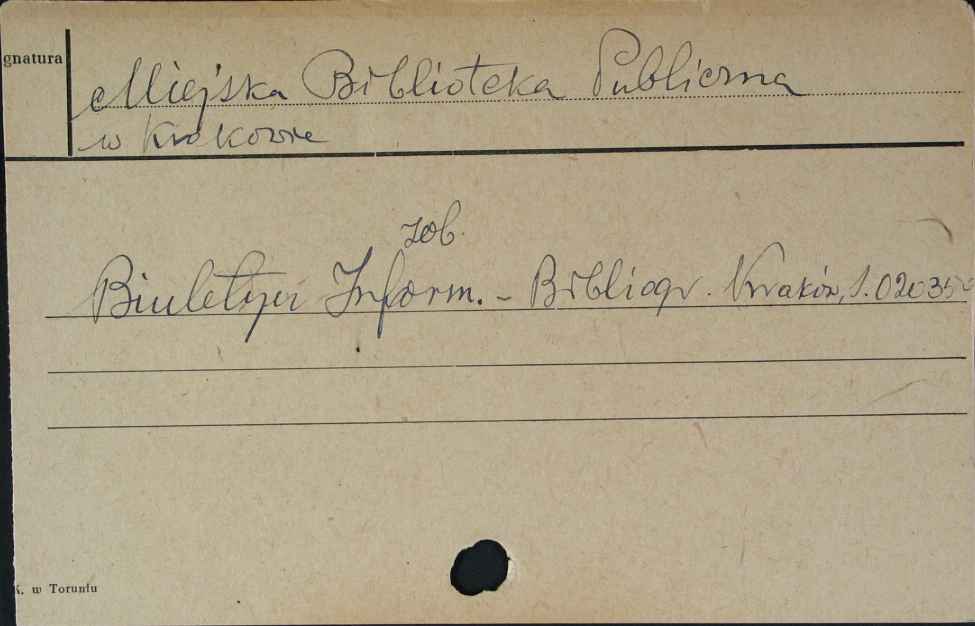 gnatura
Miejska Biblioteka Publiczna
w Krakowie
zob.
Biuletyn Inform. - Bibliogr. Kraków, S. 02035
K. w Toruniu